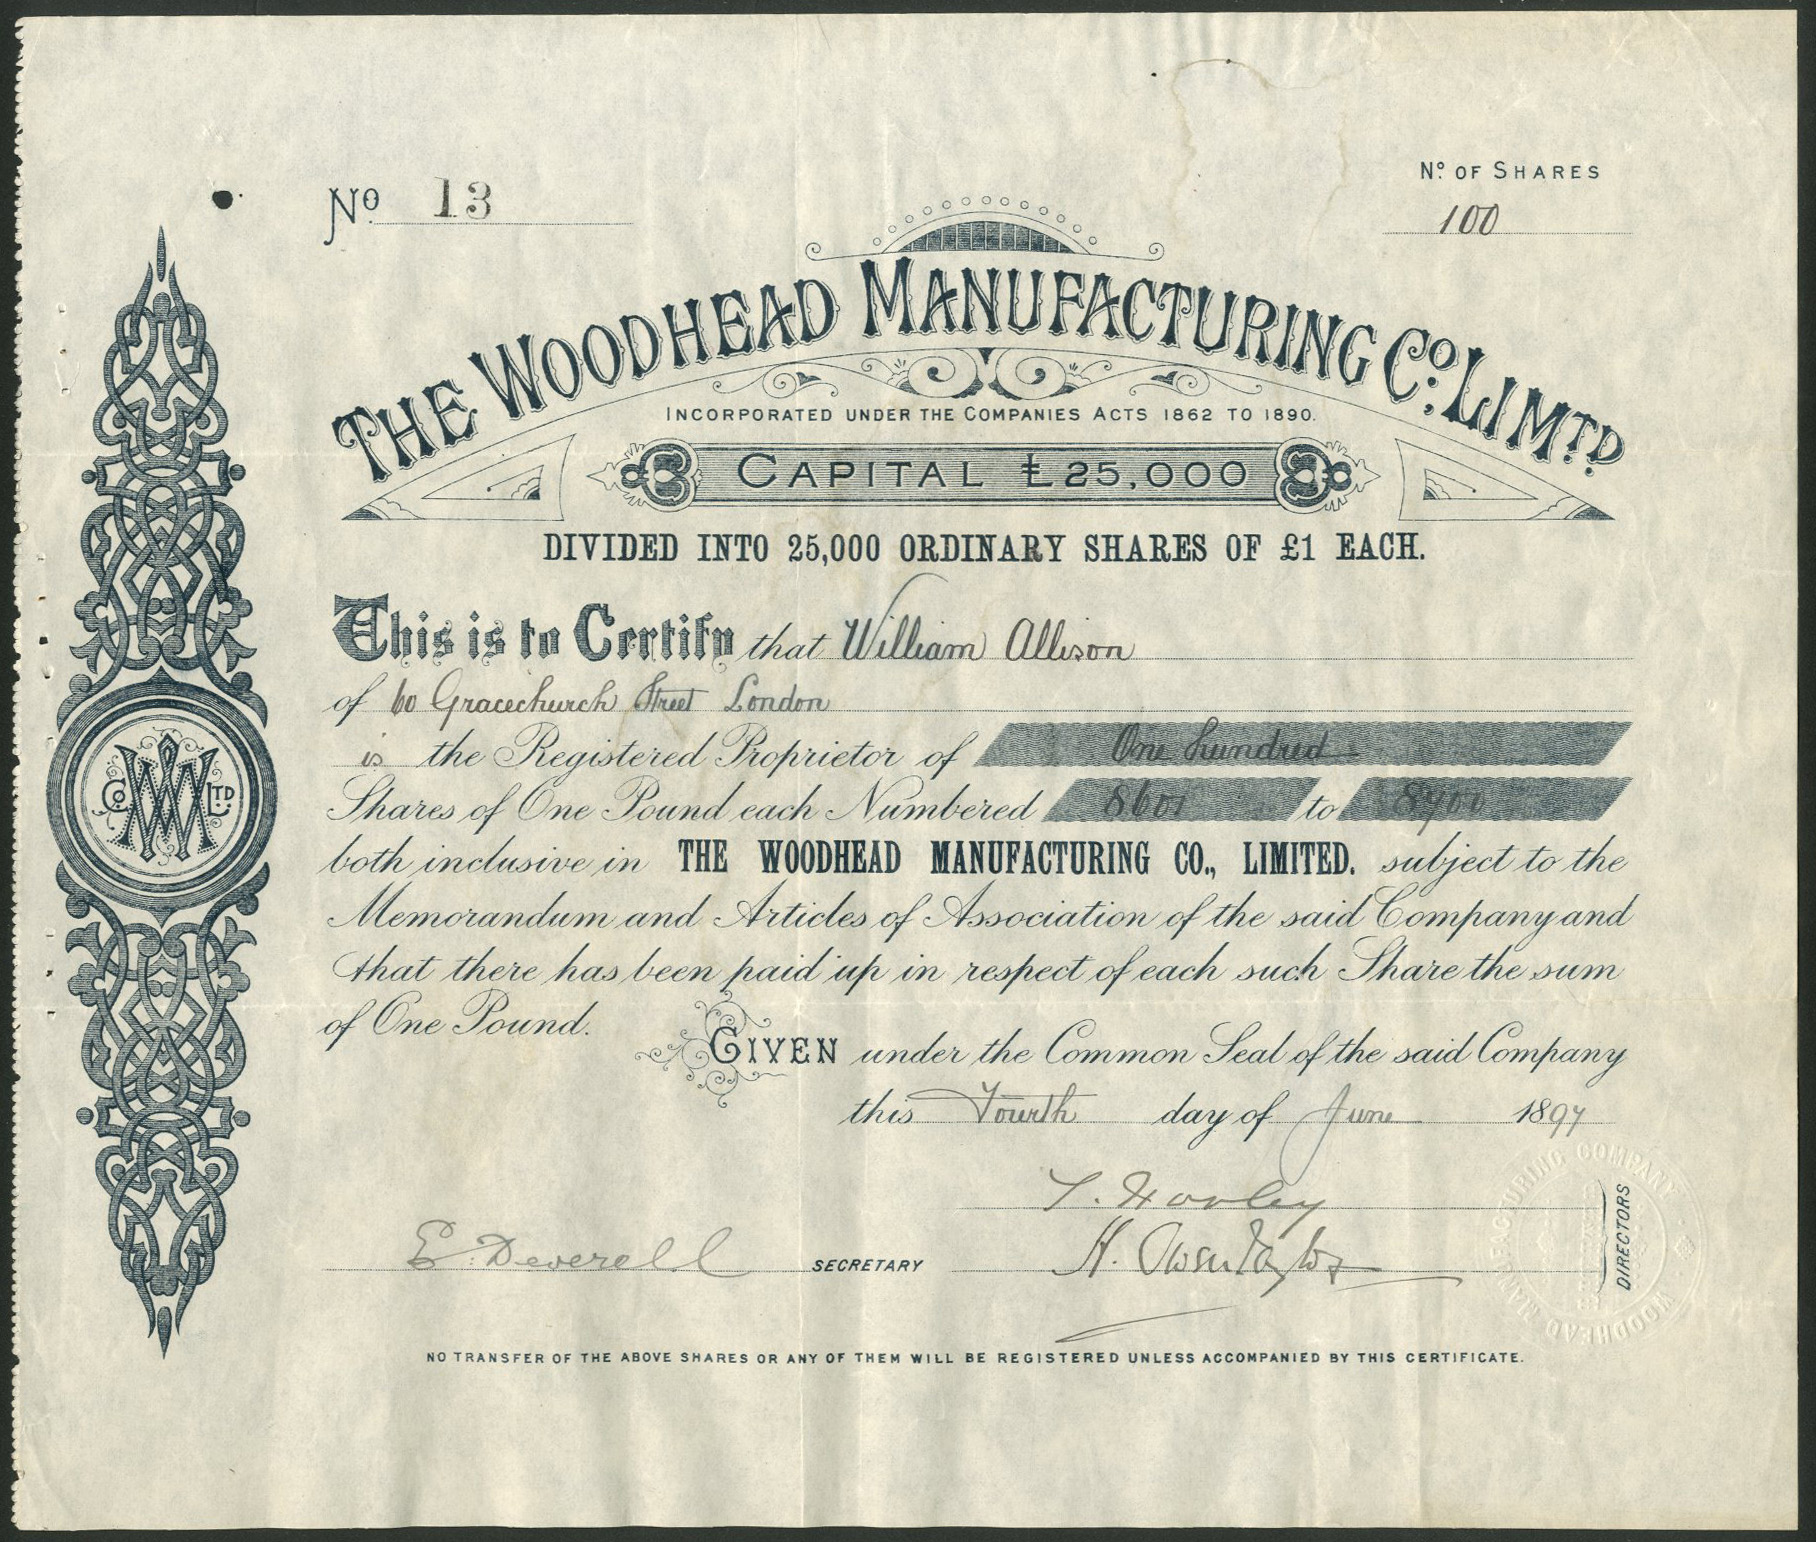 No 13
No. OF SHARES
100
THE WOODHEAD MANUFACTURING Co. LIMTD
INCORPORATED UNDER THE COMPANIES ACTS 1862 TO 1890.
CAPITAL £25,000
DIVIDED INTO 25,000 ORDINARY SHARES OF £1 EACH.
This is to Certify that William Allison
of 60 Gracechurch Street London
is the Registered Proprietor of One hundred
Shares of One Pound each Numbered 8601 to 8700
both inclusive in THE WOODHEAD MANUFACTURING CO., LIMITED. subject to the
Memorandum and Articles of Association of the said Company and
that there has been paid up in respect of each such Share the sum
of One Pound.
GIVEN under the Common Seal of the said Company
this Fourth day of June 1897
E. Deverell SECRETARY
H. Owen Taylor
DIRECTORS
NO TRANSFER OF THE ABOVE SHARES OR ANY OF THEM WILL BE REGISTERED UNLESS ACCOMPANIED BY THIS CERTIFICATE.
WM Co. LTD.
WOODHEAD MANUFACTURING COMPANY